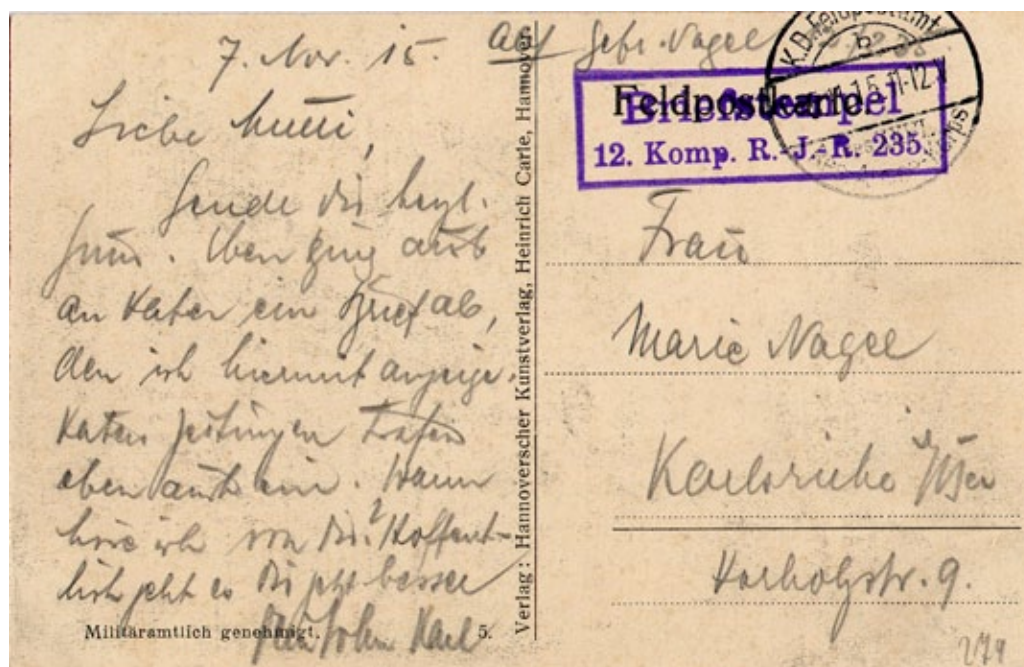 7. Nov. 15.
Liebe Mutti,
Sende dir herzl.
Gruß. Eben ging auch
an Vater ein Brief ab,
den ich hiermit anzeige.
Vaters Zeitungen trafen
eben auch ein. Wann
höre ich von dir? Hoffent-
lich geht es dir jetzt besser
Dein Sohn Karl
Militäramtlich genehmigt.
5.
Verlag: Hannoverscher Kunstverlag, Heinrich Carle, Hannover.
Abs. Gefr. Nagel
K.D. Feldpostamt
Feldpostkarte.
Briefstempel
12. Komp. R.-J.-R. 235.
Frau
Marie Nagel
Karlsruhe
9.
274